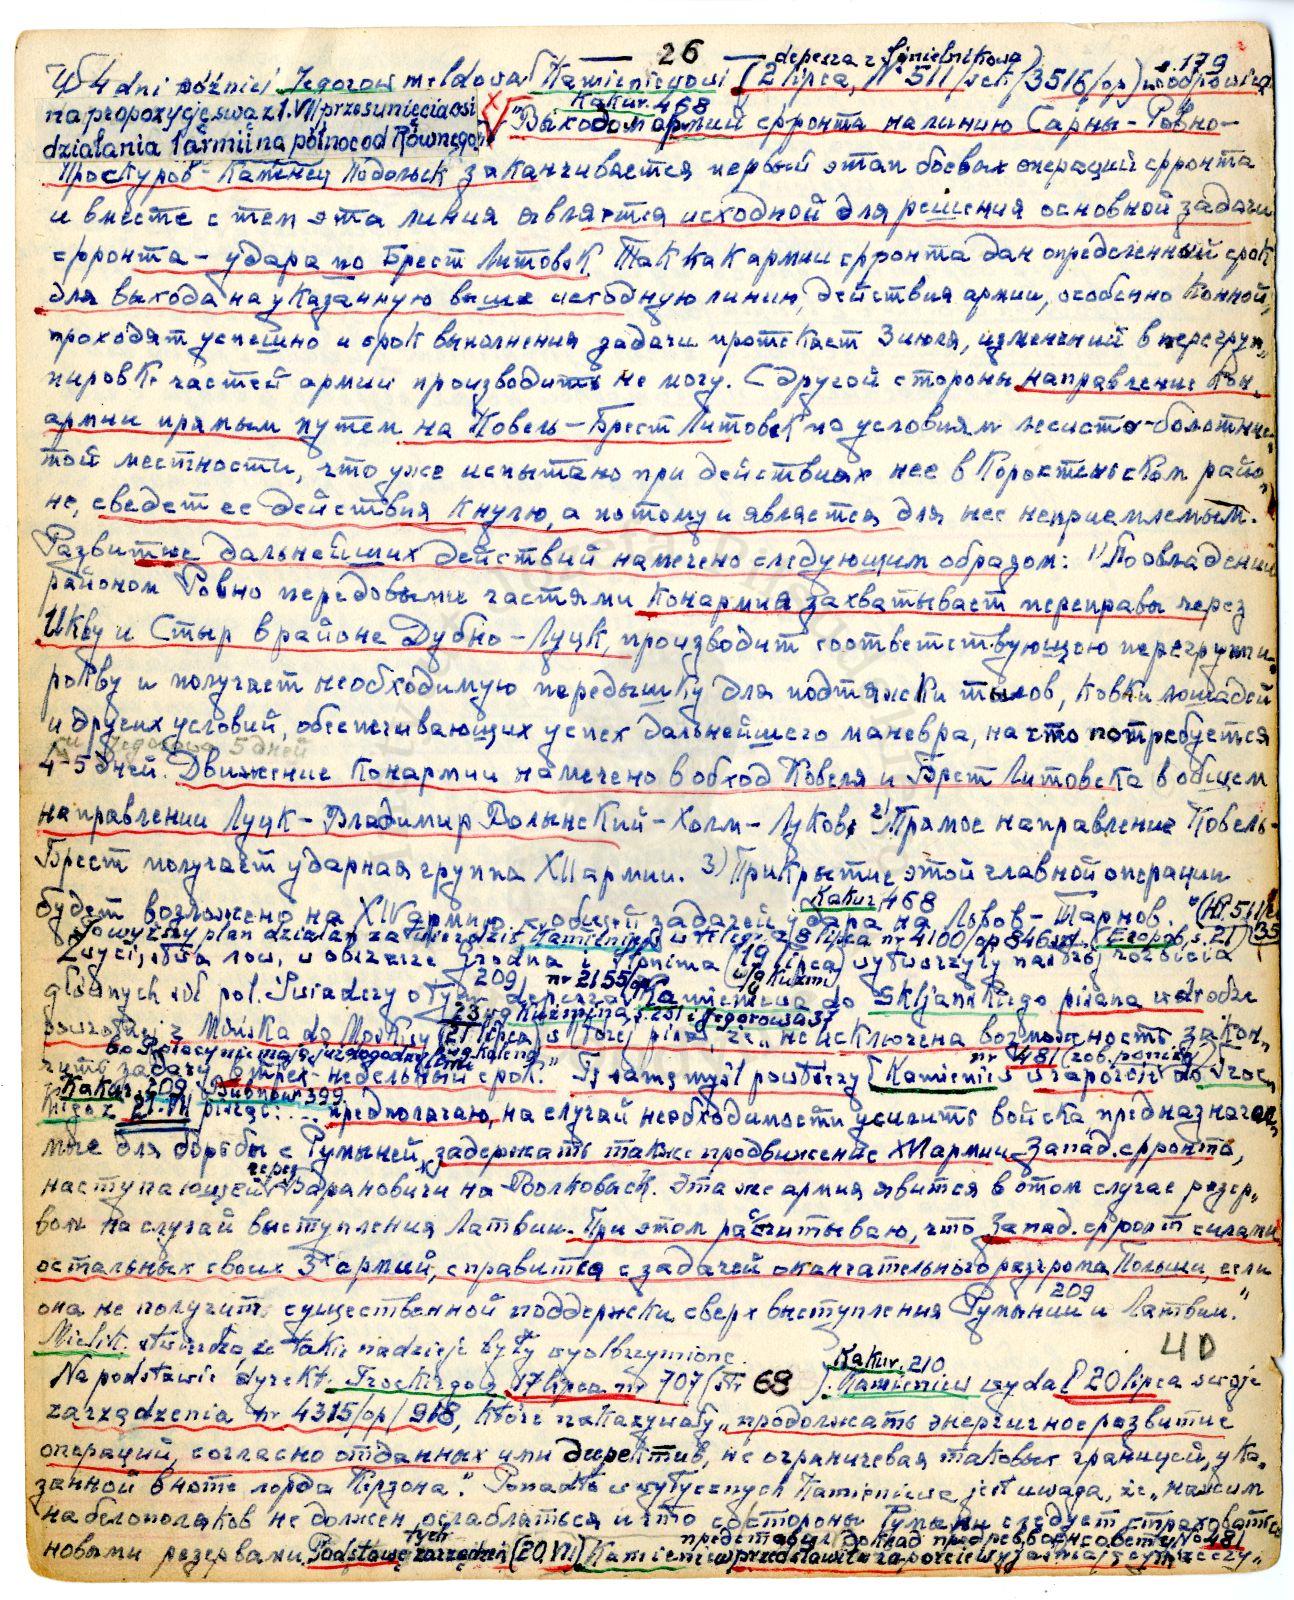 — 26 — depesza z Sinielnikowa
W 4 dni później Jegorow meldował Kamieniewowi (2 lipca, № 511/sek/3516/op) w odpowiedzi s. 179
na propozycję swą z 1.VII przesunięcia osi Kakur. 468
działania 1 armii na północ od Równego: "Выходом армий фронта на линию Сарны-Ровно-
Проскуров-Каменец Подольск заканчивается первый этап боевых операций фронта
и вместе с тем эта линия является исходной для решения основной задачи
фронта - удара по Брест Литовск. Так как армии фронта дан определенный срок
для выхода на указанную выше исходную линию, действия армии, особенно Конной,
проходят успешно и срок выполнения задачи протекает 3 июля, изменений в перегруп-
пировке частей армии производить не могу. С другой стороны направление Кон-
армии прямым путем на Ковель-Брест Литовск по условиям лесисто-болотис-
той местности, что уже испытано при действиях нее в Коростеньском райо-
не, сведет ее действия к нулю, а потому и является для нее неприемлемым.
Развитие дальнейших действий намечено следующим образом: 1) По овладении
районом Ровно передовыми частями Конармия захватывает переправы через
Икву и Стыр в районе Дубно-Луцк, производит соответствующую перегрупи-
ровку и получает необходимую передышку для подтяжки тылов, ковки лошадей
и других условий, обеспечивающих успех дальнейшего маневра, на что потребуется
u Jegorowa 5 дней
4-5 дней. Движение Конармии намечено в обход Ковеля и Брест Литовска в общем
направлении Луцк-Владимир Волынский-Холм-Луков. 2) Прямое направление Ковель-
Брест получает ударная группа XII армии. 3) Прикрытие этой главной операции
Kakur. 468
будет возложено на XIV армию с общей задачей удара на Львов-Тарнов." (№ 511/
Powyższy plan działań zatwierdził Kamieniew w telegr. z 8 lipca nr 4100/op 846 (Егоров, s. 21) 35
Zwycięstwa sow. w obszarze Grodna i Słonima (19 lipca) wytworzyły nastrój rozbicia
209 nr 2155/op wg Kuźmi
głównych sił pol. Świadczy o tym depesza Kamieniewa do Skljanskiego pisana w drodze
23 wg Kuzmina, s. 231 i Jegorowa 37
powrotnej z Mińska do Moskwy (21 lipca) w której pisał, że "не исключена возможность закон-
чить задачу в трех-недельный срок." Tę samą myśl powtórzy Kamieniew w raporcie do Troc-
nr 481 (zob. poniżej)
Kakur. 209 Subnow 399
kiego z 21.VII pisząc: ... "предполагаю, на случай необходимости усилить войска предназначае-
мые для борьбы с Румыней, задержать также продвижение XVI армии Запад. фронта,
наступающей через Барановичи на Волковыск. Эта же армия явится в этом случае резер-
вом на случай выступления Латвии. При этом расчитываю, что Запад. фронт силами
остальных своих 3х армий, справится с задачей окончательного разгрома Польши, если
она не получит существенной поддержки сверх выступления Румынии и Латвии." 209
Mielik. stwierdza że takie nadzieje były wyolbrzymione. 4D
Kakur. 210
Na podstawie dyrekt. Trockiego z 17 lipca nr 707 (str 68) Kamieniew wydał 20 lipca swoje
zarządzenia nr 4315/op/918, które nakazywały "продолжать энергичное развитие
операций, согласно отданных ими директив, не ограничевая таковых границей, ука-
занной в ноте лорда Керзона". Ponadto w wytycznych Kamieniewa jest uwaga, że "нажим
на белополяков не должен ослабляться и что со стороны Румынии следует страховаться
новыми резервами. Podstawę tych zarządzeń (20.VII) Kamieniew przedstawił w raporcie wyjaśniającym rzeczy
представил доклад предреввоенсовету № 481